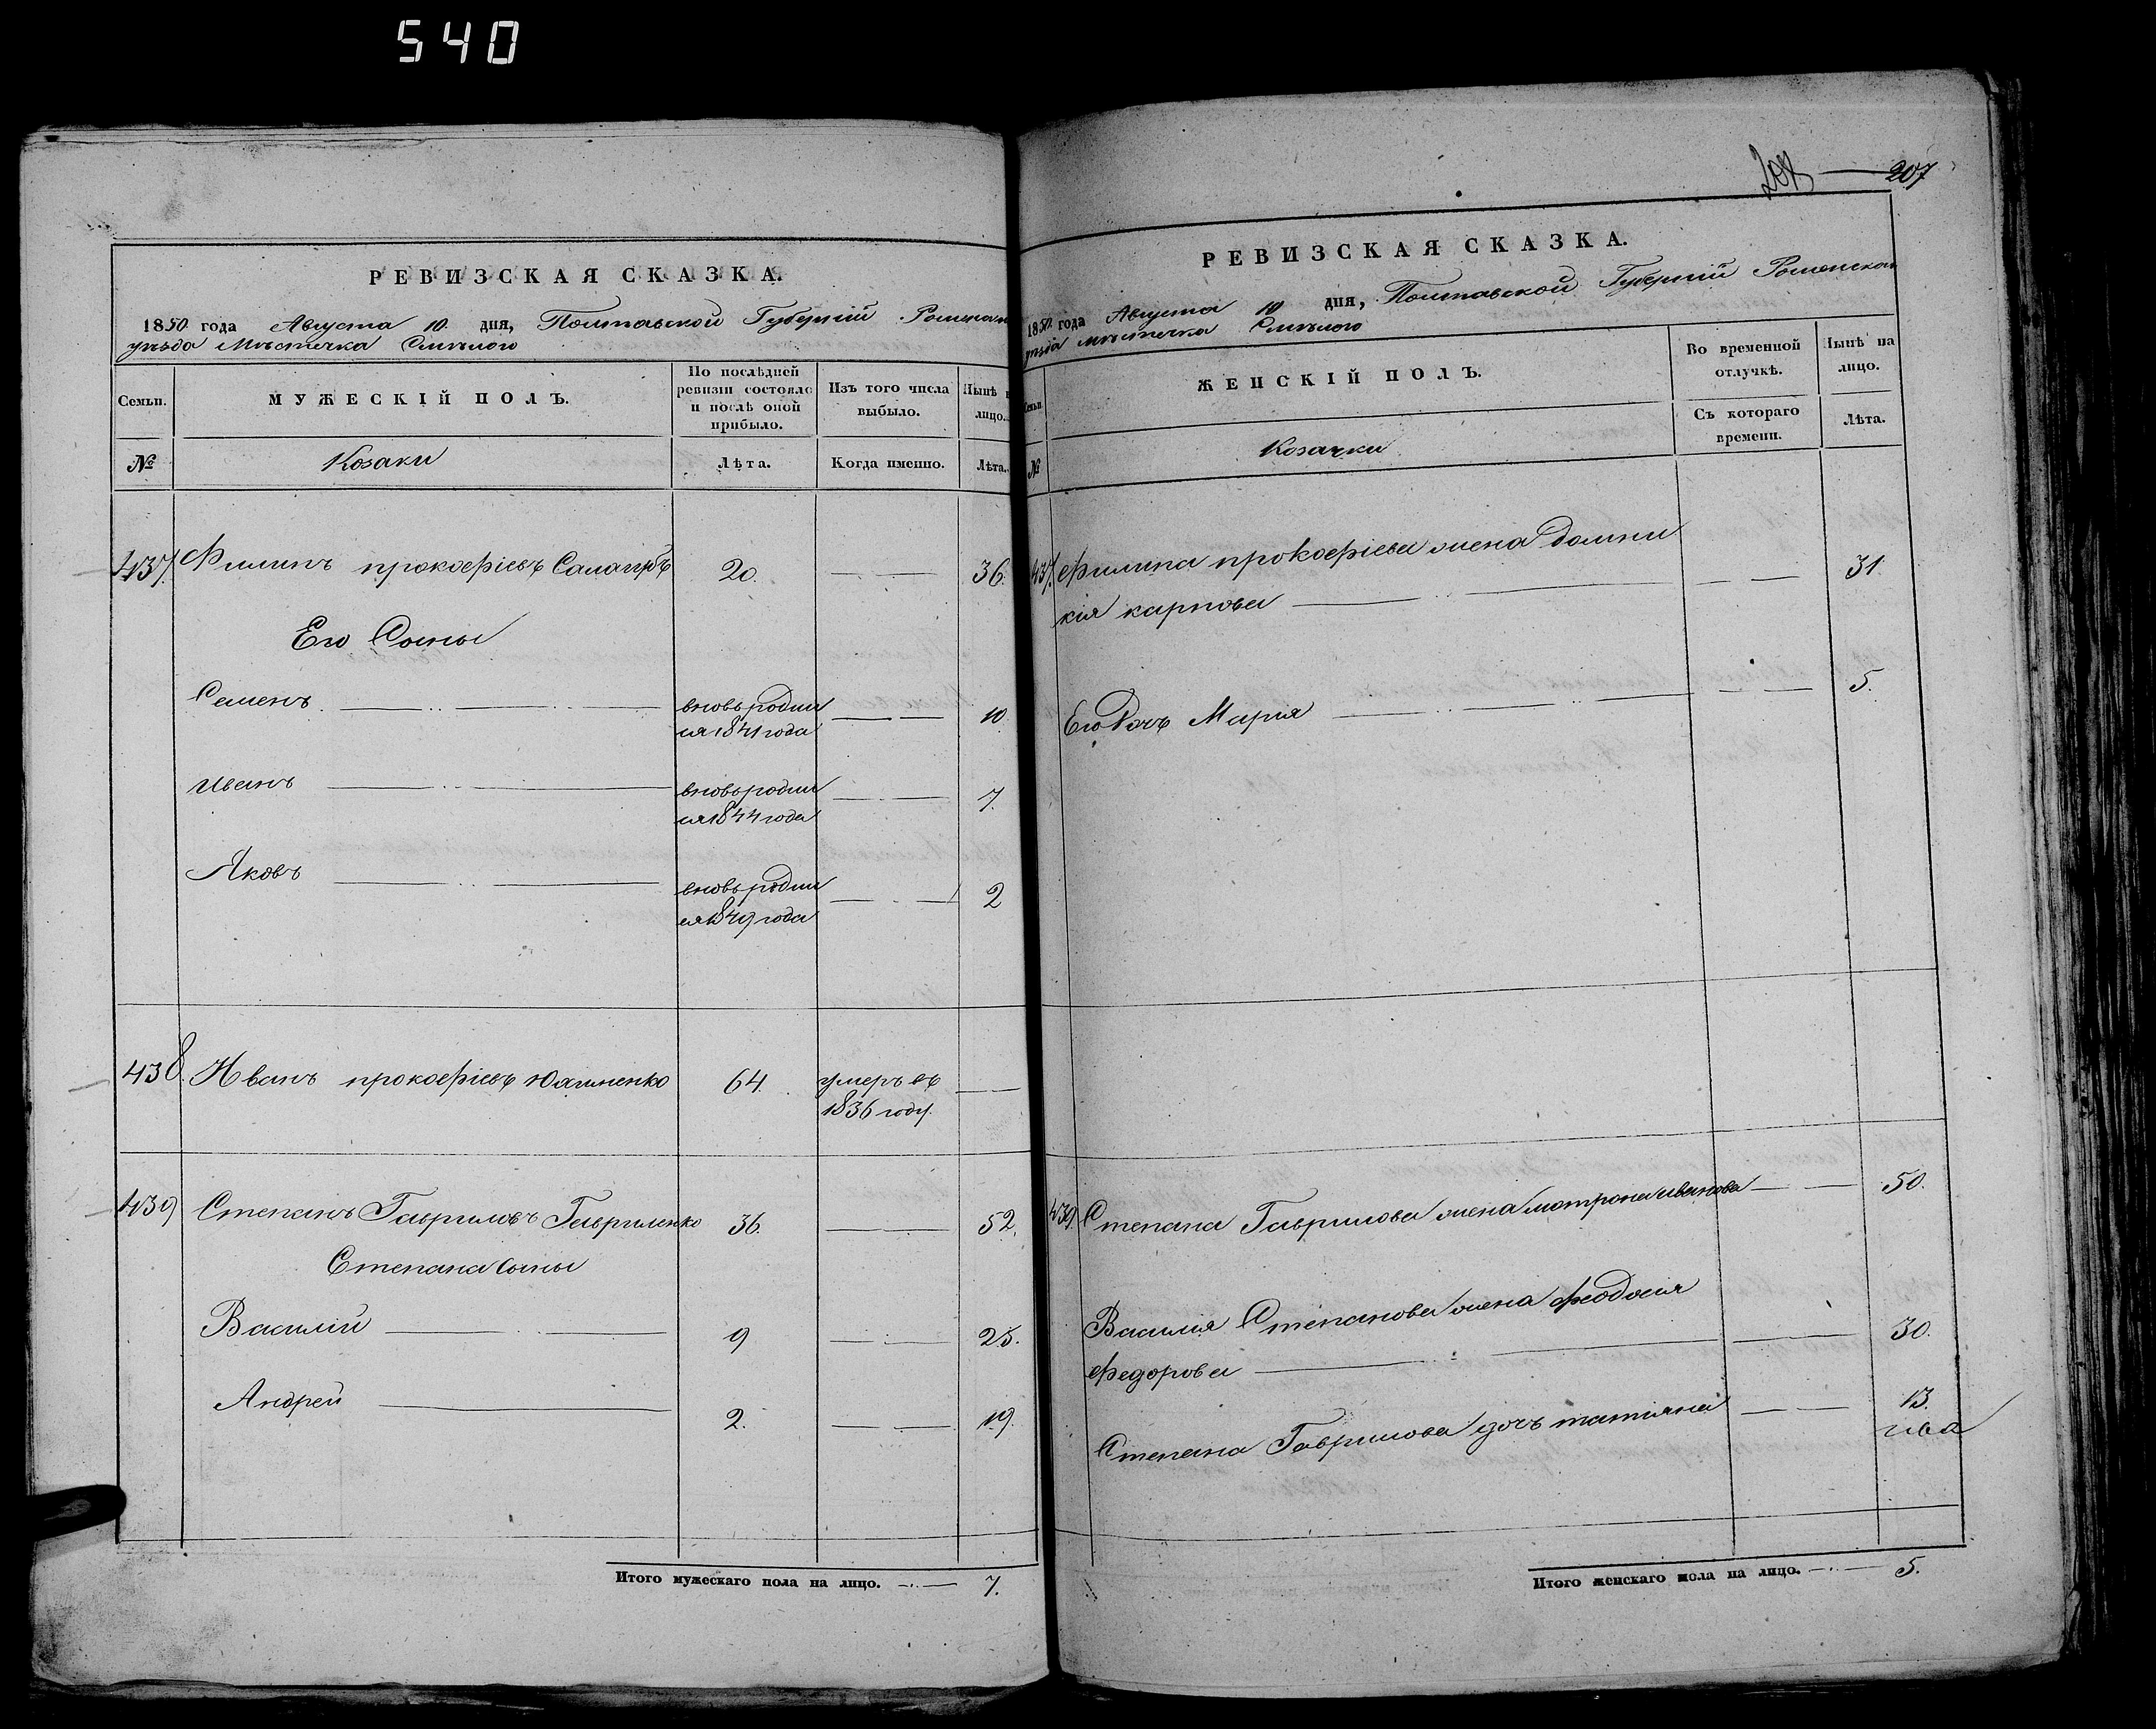 540
РЕВИЗСКАЯ СКАЗКА.
1850 года Августа 10 дня, Полтавской Губерніи Роменскаго
уѣзда Мѣстечка Смѣлого
Семьи.
МУЖЕСКІЙ ПОЛЪ.
По послѣдней
ревизіи состояло
и послѣ оной
прибыло.
Изъ того числа
выбыло.
Нынѣ на
лицо.
№
Козаки
Лѣта.
Когда именно.
Лѣта.
437. Филипъ прокофіевъ 20. 36.
Его Сыны
Семенъ вновь родил
ся 1841 года 10
Иванъ вновь родил
ся 1844 года 7.
Яковъ вновь родил
ся 1849 года 2
438. Иванъ прокофіевъ Юхименко 64. умеръ въ
1836 году.
439 Степанъ Гавриловъ Гавриленко 36. 52.
Степана сыны
Василій 9 25.
Андрей 2. 19.
Итого мужескаго пола на лицо. 7.
207
РЕВИЗСКАЯ СКАЗКА.
1850 года Августа 10 дня, Полтавской Губерніи Роменскаго
уѣзда мѣстечка Смѣлого
Семьи
ЖЕНСКІЙ ПОЛЪ.
Во временной
отлучкѣ.
Нынѣ на
лицо.
№
Козачки
Съ котораго
времени.
Лѣта.
437. Филипа прокофіева жена Домни
кія карпова 31
Его Дочь Марія 5.
439. Степана Гаврилова жена мотрона иванова 50.
Василія Степанова жена феодосія
федорова 30.
Степана Гаврилова дочь татіяна 13.
Итого женскаго пола на лицо. 5.